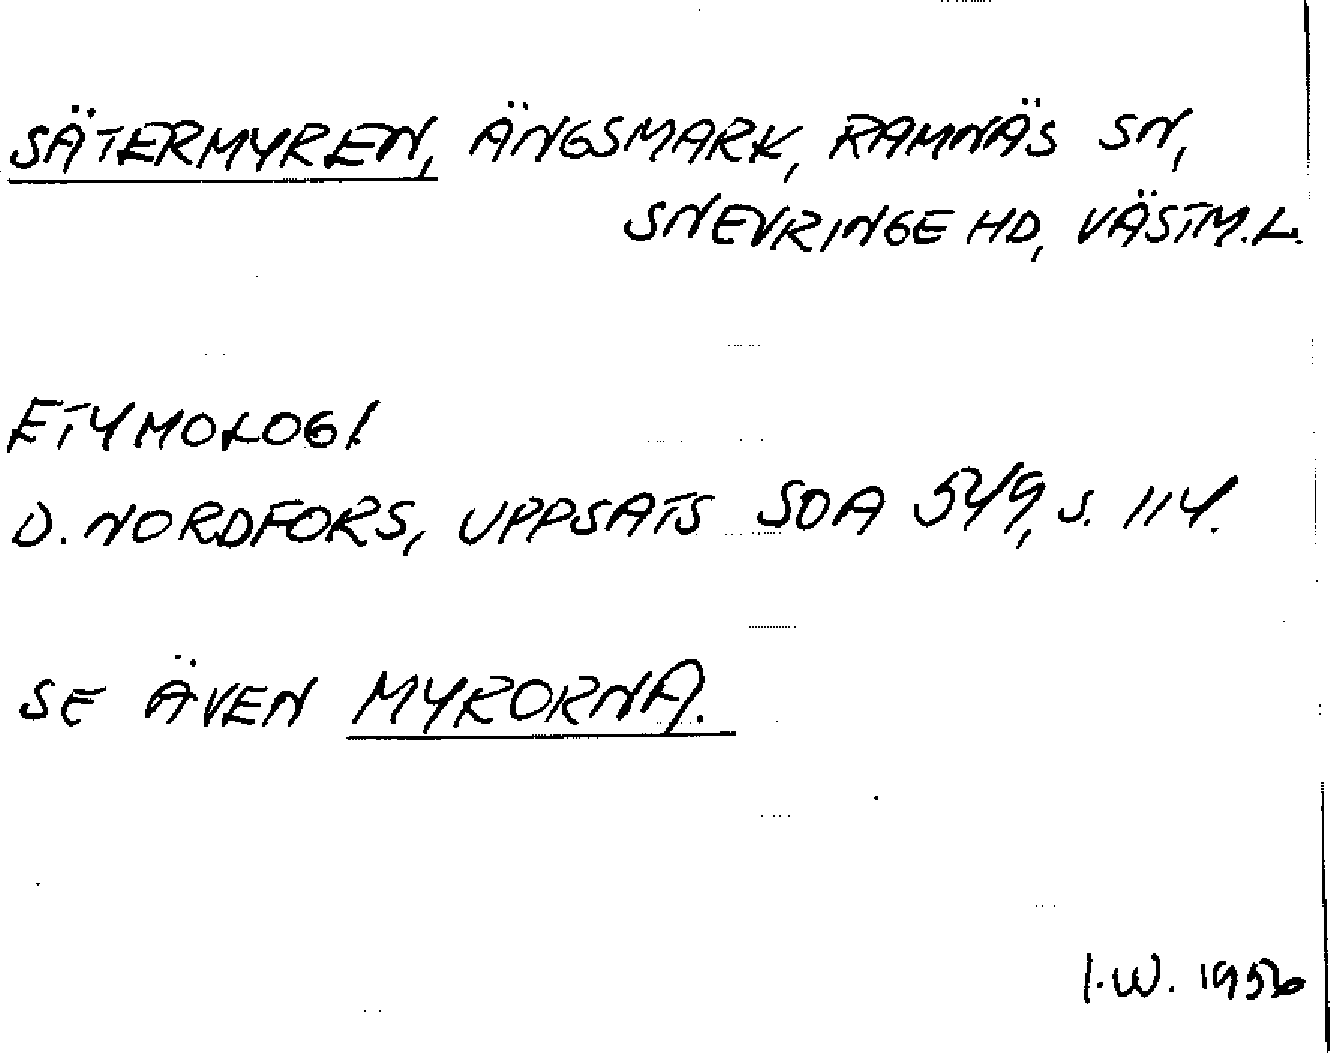 SÄTERMYREN, ÄNGSMARK, RAMNÄS SN,
SNEVRINGE HD, VÄSTM.L.
ETYMOLOGI
D. NORDFORS, UPPSATS SOA 549, S. 114.
SE ÄVEN MYRORNA.
I.W. 1956